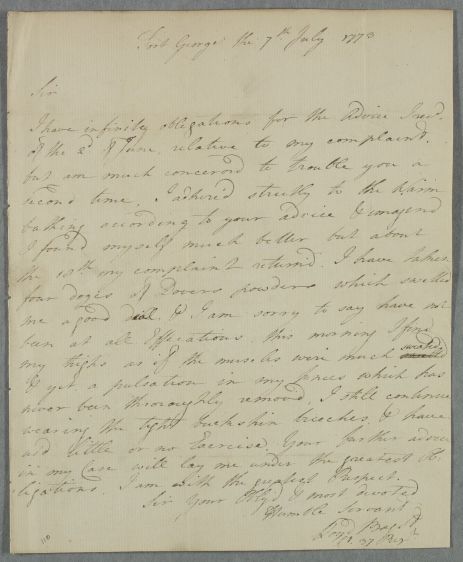 Fort George the 7th July 1773
Sir
I have infinite obligations for the Advice I recd.
of the 2d of June, relative to my complaint.
but am much concerned to trouble you a
second time. I adhered strictly to the Warm
bathing according to your advice & imagend
I found myself much better but about
the 10th my complaint returnd. I have taken
four dozes of Dovers powders which swelled
me a good deal & I am sorry to say have not
been at all Effecatious. this morning I find
my thighs as if the muscles were much swelled
& yet a pulsation in my knees which has
never been thoroughly removd. I still continue
wearing the tight buckskin breeches & have
used little or no Exercise. Your farther advice
in my Case will lay me under the greatest Ob-
ligations. I am with the greatest Respect.
Sir Your Obligd & most devoted
Humble Servant
37 Regt